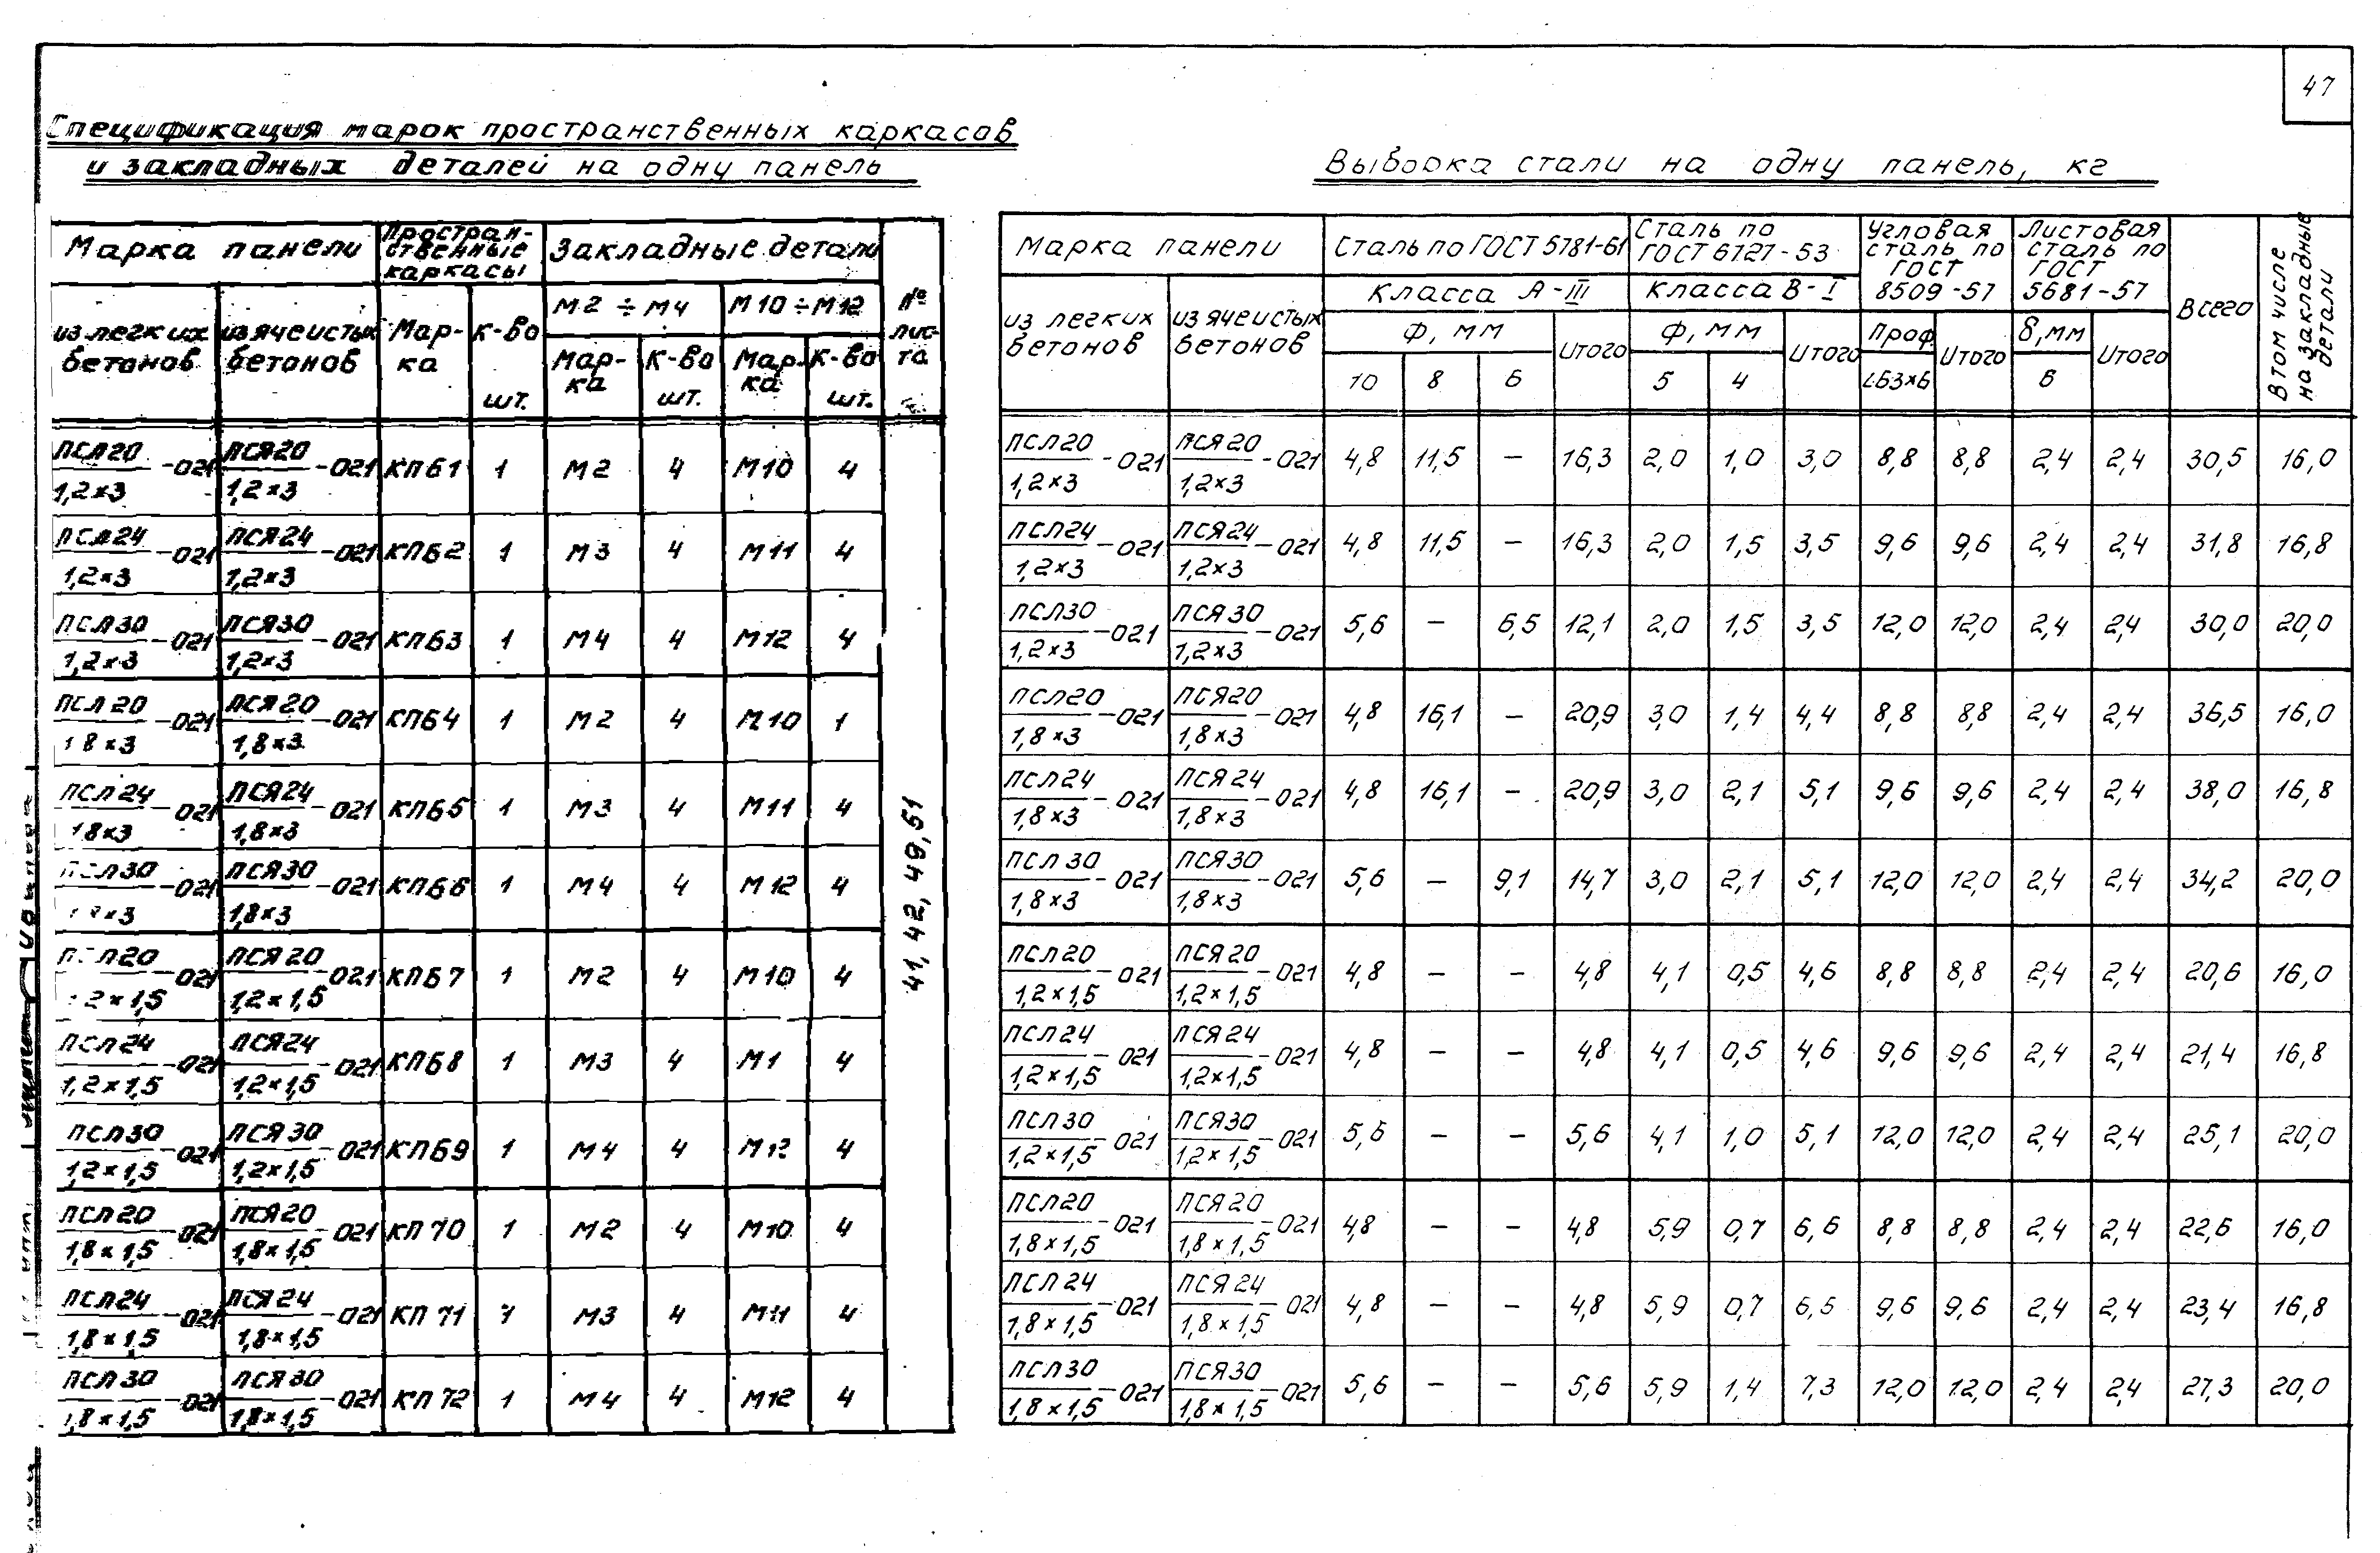 47
Спецификация марок пространственных каркасов
и закладных деталей на одну панель
Марка панели | Простран-ственные каркасы | Закладные детали | № лис-та
из легких бетонов | из ячеистых бетонов | Мар-ка | К-во шт. | М2 ÷ М4 | М10 ÷ М12
Мар-ка | К-во шт. | Мар-ка | К-во шт.
ПСЛ20/1,2×3 -021 | ПСЯ20/1,2×3 -021 | КП61 | 1 | М2 | 4 | М10 | 4
ПСЛ24/1,2×3 -021 | ПСЯ24/1,2×3 -021 | КП62 | 1 | М3 | 4 | М11 | 4
ПСЛ30/1,2×3 -021 | ПСЯ30/1,2×3 -021 | КП63 | 1 | М4 | 4 | М12 | 4
ПСЛ20/1 8×3 -021 | ПСЯ20/1,8×3 -021 | КП64 | 1 | М2 | 4 | М10 | 1
ПСЛ24/1 8×3 -021 | ПСЯ24/1,8×3 -021 | КП65 | 1 | М3 | 4 | М11 | 4
ПСЛ30 -021 | ПСЯ30/1,8×3 -021 | КП66 | 1 | М4 | 4 | М12 | 4
ПСЛ20/1,2×1,5 -021 | ПСЯ20/1,2×1,5 -021 | КП67 | 1 | М2 | 4 | М10 | 4
ПСЛ24/1,2×1,5 -021 | ПСЯ24/1,2×1,5 -021 | КП68 | 1 | М3 | 4 | М1 | 4
ПСЛ30/1,2×1,5 -021 | ПСЯ30/1,2×1,5 -021 | КП69 | 1 | М4 | 4 | М12 | 4
ПСЛ20/1,8×1,5 -021 | ПСЯ20/1,8×1,5 -021 | КП70 | 1 | М2 | 4 | М10 | 4
ПСЛ24/1,8×1,5 -021 | ПСЯ24/1,8×1,5 -021 | КП71 | 1 | М3 | 4 | М11 | 4
ПСЛ30/1,8×1,5 -021 | ПСЯ30/1,8×1,5 -021 | КП72 | 1 | М4 | 4 | М12 | 4
41, 42, 49, 51
Выборка стали на одну панель, кг
Марка панели | Сталь по ГОСТ 5781-61 | Сталь по ГОСТ 6727-53 | Угловая сталь по ГОСТ 8509-57 | Листовая сталь по ГОСТ 5681-57 | Всего | В том числе на закладные детали
из легких бетонов | из ячеистых бетонов | Класса А-III | Класса В-I
Ф, мм | Итого | Ф, мм | Итого | Проф | Итого | δ, мм | Итого
10 | 8 | 6 | 5 | 4 | L63×6 | 6
ПСЛ20/1,2×3 -021 | ПСЯ20/1,2×3 -021 | 4,8 | 11,5 | — | 16,3 | 2,0 | 1,0 | 3,0 | 8,8 | 8,8 | 2,4 | 2,4 | 30,5 | 16,0
ПСЛ24/1,2×3 -021 | ПСЯ24/1,2×3 -021 | 4,8 | 11,5 | — | 16,3 | 2,0 | 1,5 | 3,5 | 9,6 | 9,6 | 2,4 | 2,4 | 31,8 | 16,8
ПСЛ30/1,2×3 -021 | ПСЯ30/1,2×3 -021 | 5,6 | — | 6,5 | 12,1 | 2,0 | 1,5 | 3,5 | 12,0 | 12,0 | 2,4 | 2,4 | 30,0 | 20,0
ПСЛ20/1,8×3 -021 | ПСЯ20/1,8×3 -021 | 4,8 | 16,1 | — | 20,9 | 3,0 | 1,4 | 4,4 | 8,8 | 8,8 | 2,4 | 2,4 | 36,5 | 16,0
ПСЛ24/1,8×3 -021 | ПСЯ24/1,8×3 -021 | 4,8 | 16,1 | — | 20,9 | 3,0 | 2,1 | 5,1 | 9,6 | 9,6 | 2,4 | 2,4 | 38,0 | 16,8
ПСЛ30/1,8×3 -021 | ПСЯ30/1,8×3 -021 | 5,6 | — | 9,1 | 14,7 | 3,0 | 2,1 | 5,1 | 12,0 | 12,0 | 2,4 | 2,4 | 34,2 | 20,0
ПСЛ20/1,2×1,5 -021 | ПСЯ20/1,2×1,5 -021 | 4,8 | — | — | 4,8 | 4,1 | 0,5 | 4,6 | 8,8 | 8,8 | 2,4 | 2,4 | 20,6 | 16,0
ПСЛ24/1,2×1,5 -021 | ПСЯ24/1,2×1,5 -021 | 4,8 | — | — | 4,8 | 4,1 | 0,5 | 4,6 | 9,6 | 9,6 | 2,4 | 2,4 | 21,4 | 16,8
ПСЛ30/1,2×1,5 -021 | ПСЯ30/1,2×1,5 -021 | 5,6 | — | — | 5,6 | 4,1 | 1,0 | 5,1 | 12,0 | 12,0 | 2,4 | 2,4 | 25,1 | 20,0
ПСЛ20/1,8×1,5 -021 | ПСЯ20/1,8×1,5 -021 | 4,8 | — | — | 4,8 | 5,9 | 0,7 | 6,6 | 8,8 | 8,8 | 2,4 | 2,4 | 22,6 | 16,0
ПСЛ24/1,8×1,5 -021 | ПСЯ24/1,8×1,5 021 | 4,8 | — | — | 4,8 | 5,9 | 0,7 | 6,6 | 9,6 | 9,6 | 2,4 | 2,4 | 23,4 | 16,8
ПСЛ30/1,8×1,5 -021 | ПСЯ30/1,8×1,5 -021 | 5,6 | — | — | 5,6 | 5,9 | 1,4 | 7,3 | 12,0 | 12,0 | 2,4 | 2,4 | 27,3 | 20,0